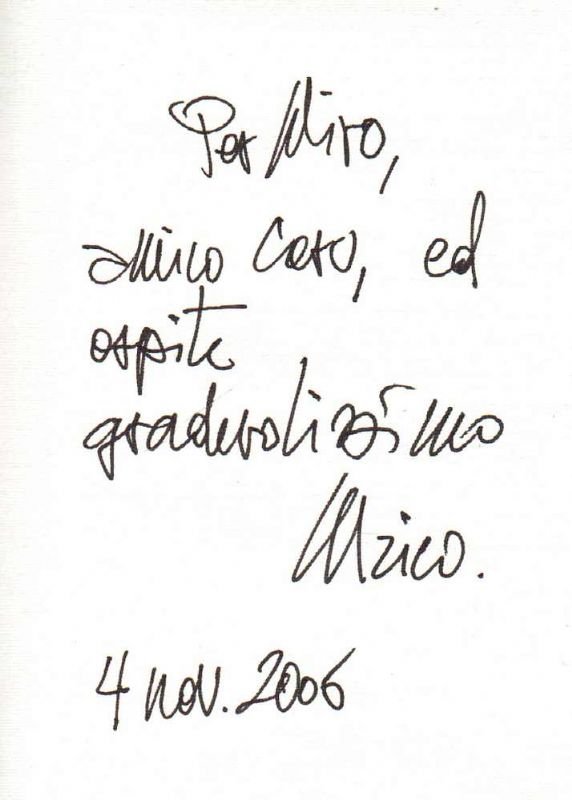 Per Miro,
amico caro, ed
ospite
gradevolissimo
Ulrico.
4 nov. 2006